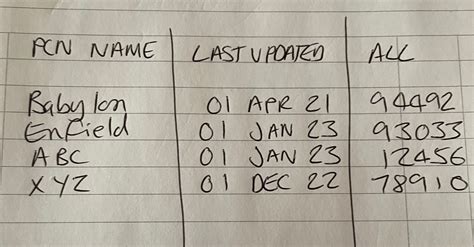 PCN NAME LAST UPDATED ALL
Babylon 01 APR 21 94492
Enfield 01 JAN 23 93033
ABC 01 JAN 23 12456
XYZ 01 DEC 22 78910